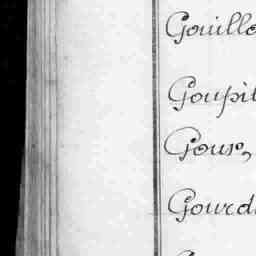 Gouillo
Goupil
Gour,
Gourd